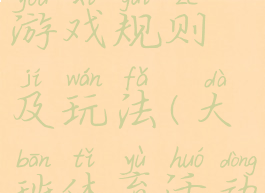 yóu xì guī zé
游戏规则
jí wán fǎ dà
及玩法(大
bān tǐ yù huó dòng
班体育活动